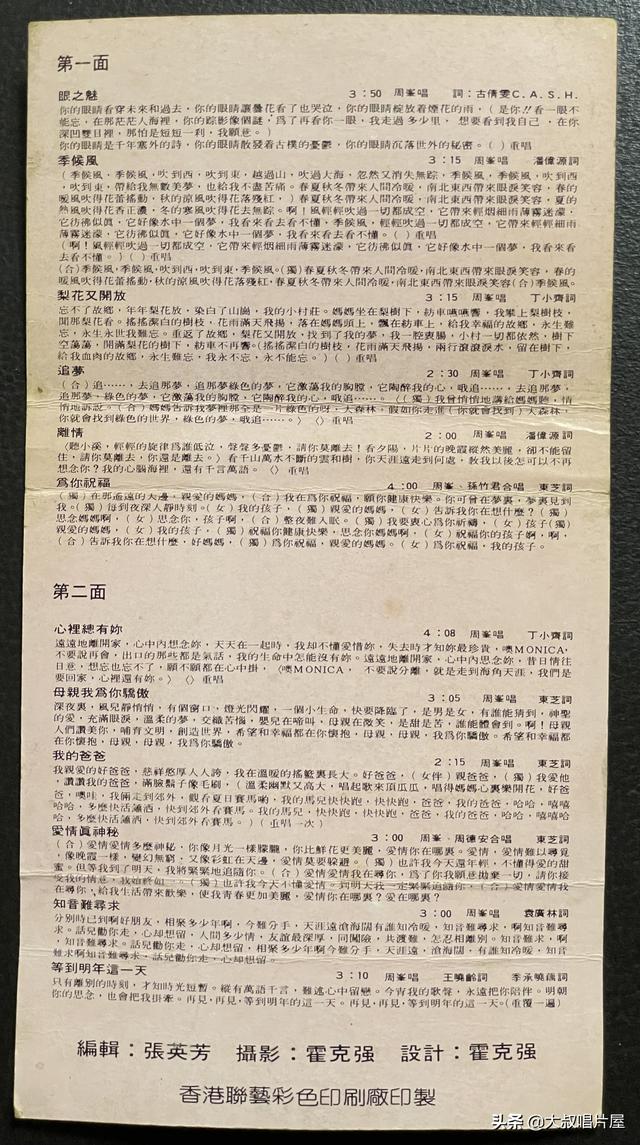 第一面
眼之魅 3：50 周峯唱 詞：古倩雯C.A.S.H.
你的眼睛看穿未來和過去，你的眼睛讓曇花看了也哭泣，你的眼睛綻放着煙花的雨，（是你！！看一眼不
能忘，在那茫茫人海裡，你的踪影像個謎，爲了再看你一眼，我走過多少里， 想要看到我自己，在你
深凹雙目裡，那怕是短短一刹，我願意。）
你的眼睛是千年塞外的詩，你的眼睛散發着古樸的憂鬱，你的眼睛沉落世外的秘密。（）重唱
季候風 3：15 周峯唱 潘偉源詞
（季候風，季候風，吹到西，吹到東，越過山，吹過大海，忽然又消失無踪，季候風，季候風，吹到西
，吹到東，帶給我無數美夢，也給我不盡苦痛。春夏秋冬帶來人間冷暖，南北東西帶來眼淚笑容，春的
暖風吹得花蕾搖動，秋的涼風吹得花落殘紅，）春夏秋冬帶來人間冷暖，南北東西帶來眼淚笑容，夏的
熱風吹得花香正濃，冬的寒風吹得花去無踪。啊！風輕輕吹過一切都成空，它帶來輕烟細雨薄霧迷濛，
它彷彿似眞，它好像水中一個夢，我看來看去看不懂。季候風，輕輕吹過一切都成空，它帶來輕烟細雨
薄霧迷濛，它彷彿似眞，它好像水中一個夢，我看來看去看不懂。（）重唱
（啊！風輕輕吹過一切都成空，它帶來輕烟細雨薄霧迷濛，它彷彿似眞，它好像水中一個夢，我看來看
去看不懂。）（）重唱
（合）季候風，季候風，吹到西，吹到東，季候風。（獨）春夏秋冬帶來人間冷暖，南北東西帶來眼淚笑容，春的
暖風吹得花蕾搖動，秋的涼風吹得花落殘紅，春夏秋冬帶來人間冷暖，南北東西帶來眼淚笑容（合）季候風。
梨花又開放 3：15 周峯唱 丁小齊詞
忘不了故鄉，年年梨花放，染白了山崗，我的小村莊。媽媽坐在梨樹下，紡車嗡嗡響，我攀上梨樹枝，
聞那梨花看。搖搖潔白的樹枝，花雨滿天飛揚，落在媽媽頭上，飄在紡車上，給我幸福的故鄉，永生難
忘，永生永世我難忘。重返了故鄉，梨花又開放，找到了我的夢，我一腔衷腸，小村一切都依然，樹下
空蕩蕩，開滿梨花的樹下，紡車不再響。（搖搖潔白的樹枝，花雨滿天飛揚，兩行滾滾淚水，留在樹下，
給我血肉的故鄉，永生難忘，我永不忘，永不能忘。）（）重唱
追夢 2：30 周峯唱 丁小齊詞
（合）追……，去追那夢，追那夢綠色的夢，它激蕩我的胸膛，它陶醉我的心，哦追……，去追那夢，
追那夢，綠色的夢，它激蕩我的胸膛，它陶醉我的心，哦追……。〈（獨）我曾悄悄地講給媽媽聽，悄
悄地訴說。（合）媽媽告訴我夢裡那全是一片綠色的呀，大森林，假如你走進（你就會找到）大森林，
你就會找到綠色的世界，綠色的夢，哦追……。〉〈〉重唱
離情 2：00 周峯唱 潘偉源詞
〈聽小溪，輕輕的旋律爲誰低泣，聲聲多憂鬱，請你莫離去！看夕陽，片片的晚霞縱然美麗，卻不能留
住，請你莫離去，你還是離去。〉看千山萬水不斷的雲和樹，你天涯遠走到何處，教我以後怎可以不再
想念你？我的心腦海裡，還有千言萬語。〈〉重唱
爲你祝福 4：00 周峯、孫竹君合唱 東芝詞
（獨）在那遙遠的天邊，親愛的媽媽，（合）我在爲你祝福，願你健康快樂。你可曾在夢裏，夢裏見到
我。（獨）每到夜深人靜時刻。（女）我的孩子，（獨）親愛的媽媽，（女）告訴我你在想什麼？（獨）
思念媽媽啊，（女）思念你，孩子啊，（合）整夜難入眠。（獨）我要衷心爲你祈禱，（女）孩子（獨）
親愛的媽媽，（女）我的孩子，（獨）祝福你健康快樂，思念你媽媽啊，（女）祝福你的孩子啊，啊，
（合）告訴我你在想什麼，好媽媽，（獨）爲你祝福，親愛的媽媽。（女）爲你祝福，我的孩子。
第二面
心裡總有妳 4：08 周峯唱 丁小齊詞
遠遠地離開家，心中內想念妳，天天在一起時，我却不懂愛惜妳，失去時才知妳最珍貴，噢MONICA，
不要說再會，出口的那些都是氣話，我的生命中怎能沒有妳。遠遠地離開家，心中內思念妳，昔日情往
日意，想忘也忘不了，願不願都在心中掛，〈噢MONICA， 不要說分離，就是走到海角天涯，我們是
要回家，心裡還有妳。〉〈〉重唱
母親我爲你驕傲 3：05 周峯唱 東芝詞
深夜裏，風兒靜悄悄，有個窗口，燈光閃耀，一個小生命，快要降臨了，是男是女，有誰能猜到，神聖
的愛，充滿眼淚，溫柔的夢，交織苦惱，嬰兒在啼叫，母親在微笑，是甜是苦，誰能體會到。啊！母親
人們讚美你，哺育文明，創造世界，希望和幸福都在你懷抱，母親，母親，我爲你驕傲。希望和幸福都
在你懷抱，母親，母親，我爲你驕傲。
我的爸爸 2：15 周峯唱 東芝詞
我親愛的好爸爸，慈祥憨厚人人誇，我在溫暖的搖籃裏長大。好爸爸，（女伴）親爸爸，（獨）我愛他
，讚讚我的爸爸，滿臉鬍子像毛刷，（溫柔幽默又高大，唱起歌來頂瓜瓜，唱得媽媽心裏樂開花，好爸
爸，噢哇，我倆走到郊外，觀看夏日賽馬喲，我的馬兒快快跑，快快跑，爸爸，我的爸爸，哈哈，嘻嘻
哈哈，多麼快活瀟洒，快到郊外看賽馬。我的馬兒，快快跑，快快跑，爸爸，我的爸爸，哈哈，嘻嘻
哈哈，多麼快活瀟洒，快到郊外看賽馬。）（重唱一次）
愛情眞神秘 3：00 周峯、周德安合唱 東芝詞
（合）愛情愛情多麼神秘，你像月光一樣朦朧，你比鮮花更美麗，愛情你在哪裏？愛情，愛情難以尋覓
，像晚霞一樣，變幻無窮，又像彩虹在天邊，愛情莫要躲避。（獨）也許我今天還年輕，不懂得愛的甜
蜜。但等我到了明天，我將緊緊地追隨你。（合）愛情愛情我在尋你，爲了你我願意拋棄一切，請你接
受我的情意，我始終如一。（獨）也許我今天不懂愛情。到明天我一定緊緊追隨你，（合）愛情愛情我
在尋你，給我生活帶來歡樂，使我靑春更加美麗，愛情你在哪裏？愛在哪裏？
知音難尋求 3：00 周峯唱 袁廣林詞
分別時已到啊好朋友，相聚多少年啊，今難分手，天涯遠滄海闊有誰知冷暖，知音難尋求，啊知音難尋
求。話兒勸你走，心却想留，人間多少情，友誼最深厚，同闖險，共渡難，怎忍相離別。知音難求，啊
，知音難尋求。話兒勸你走，心却想留，相聚多少年啊今難分手，天涯遠，滄海闊，有誰知冷暖，知音
難求啊知音難尋求……話兒勸你走，心却想留。
等到明年這一天 3：10 周峯唱 王曉齡詞 季承曉藕詞
只有離別的時刻，才知時光短暫。縱有萬語千言，難述心中留戀。今宵我的歌聲，永遠把你陪伴。明朝
你的思念，也會把我掛牽。再見，再見，等到明年的這一天。再見，再見，等到明年的這一天。（重覆一遍）
編輯：張英芳 攝影：霍克强 設計：霍克强
香港聯藝彩色印刷廠印製
头条 @大叔唱片屋